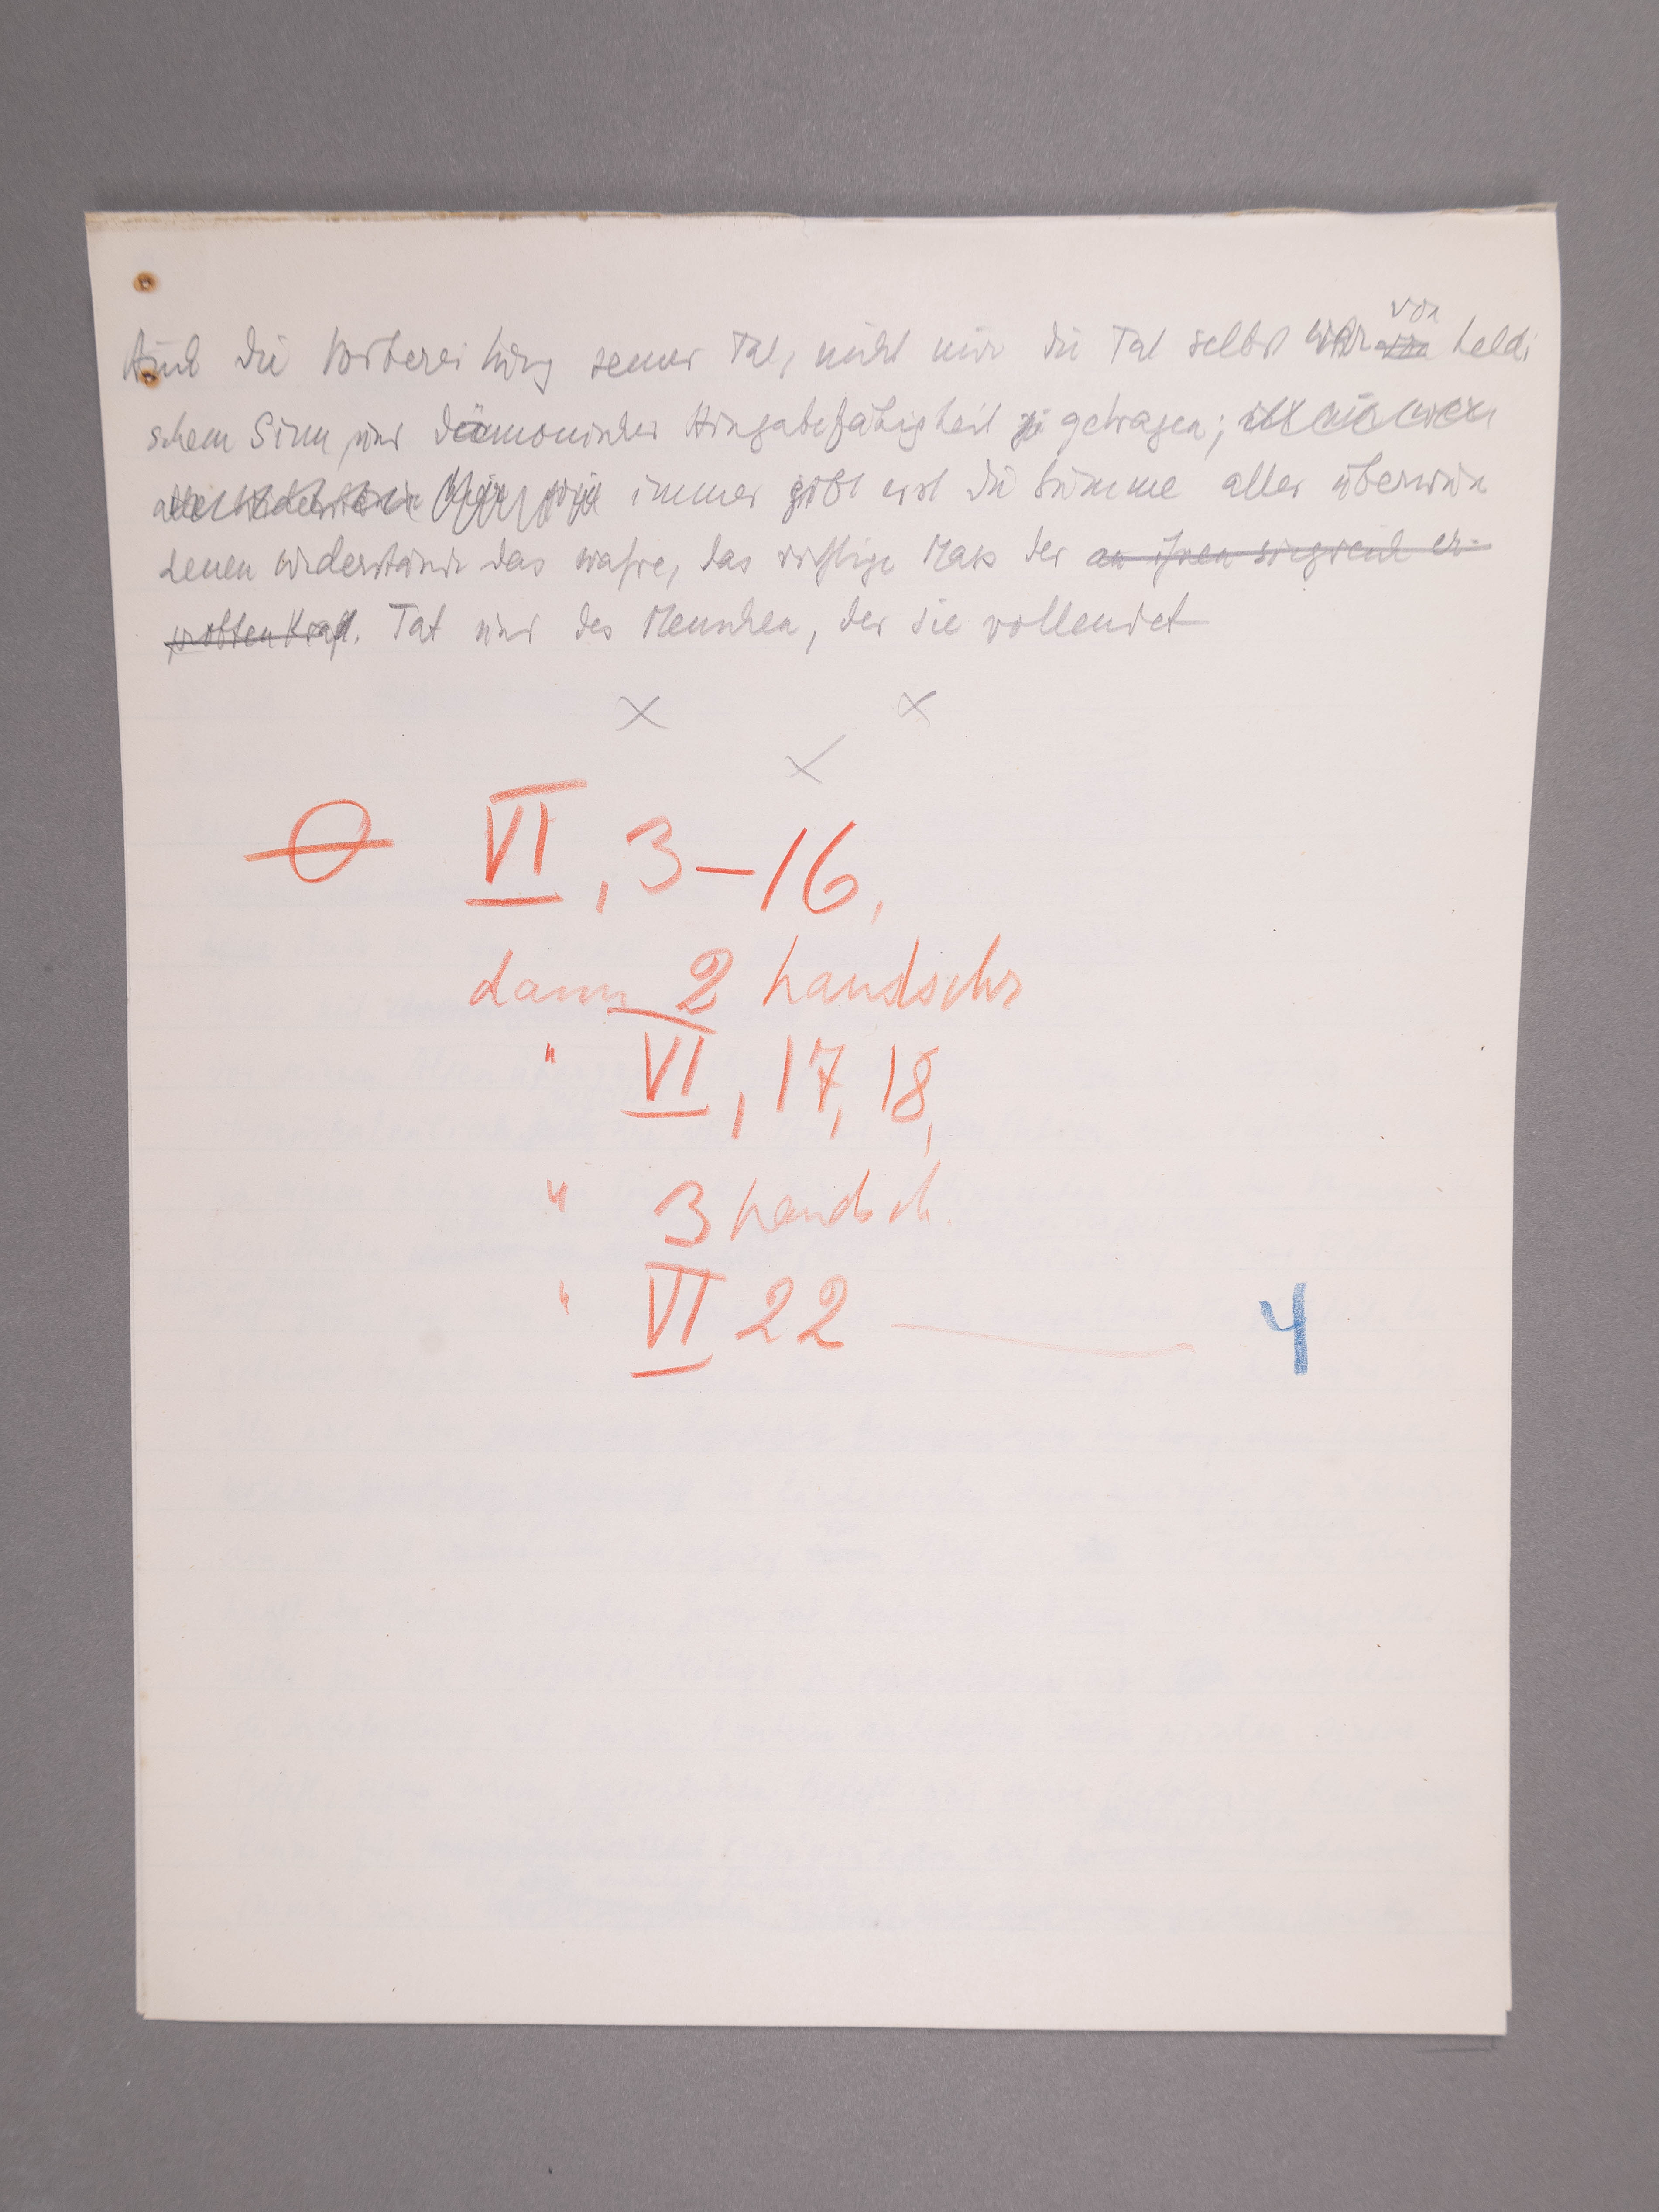 Auch die Vorbereitung seiner Tat, nicht nur die Tat selbst war von heldi
schem Sinn und dämonischer Hingabefähigkeit getragen;
immer gibt erst die Summe aller überwun
denen Widerstände das wahre, das richtige Mass der an ihnen siegreich er-
probten Kraft. Tat und des Menschen, der sie vollendet
x x
x
VI, 3–16,
dann 2 handschr
" VI, 17, 18,
" 3 handsch.
" VI 22 — 4